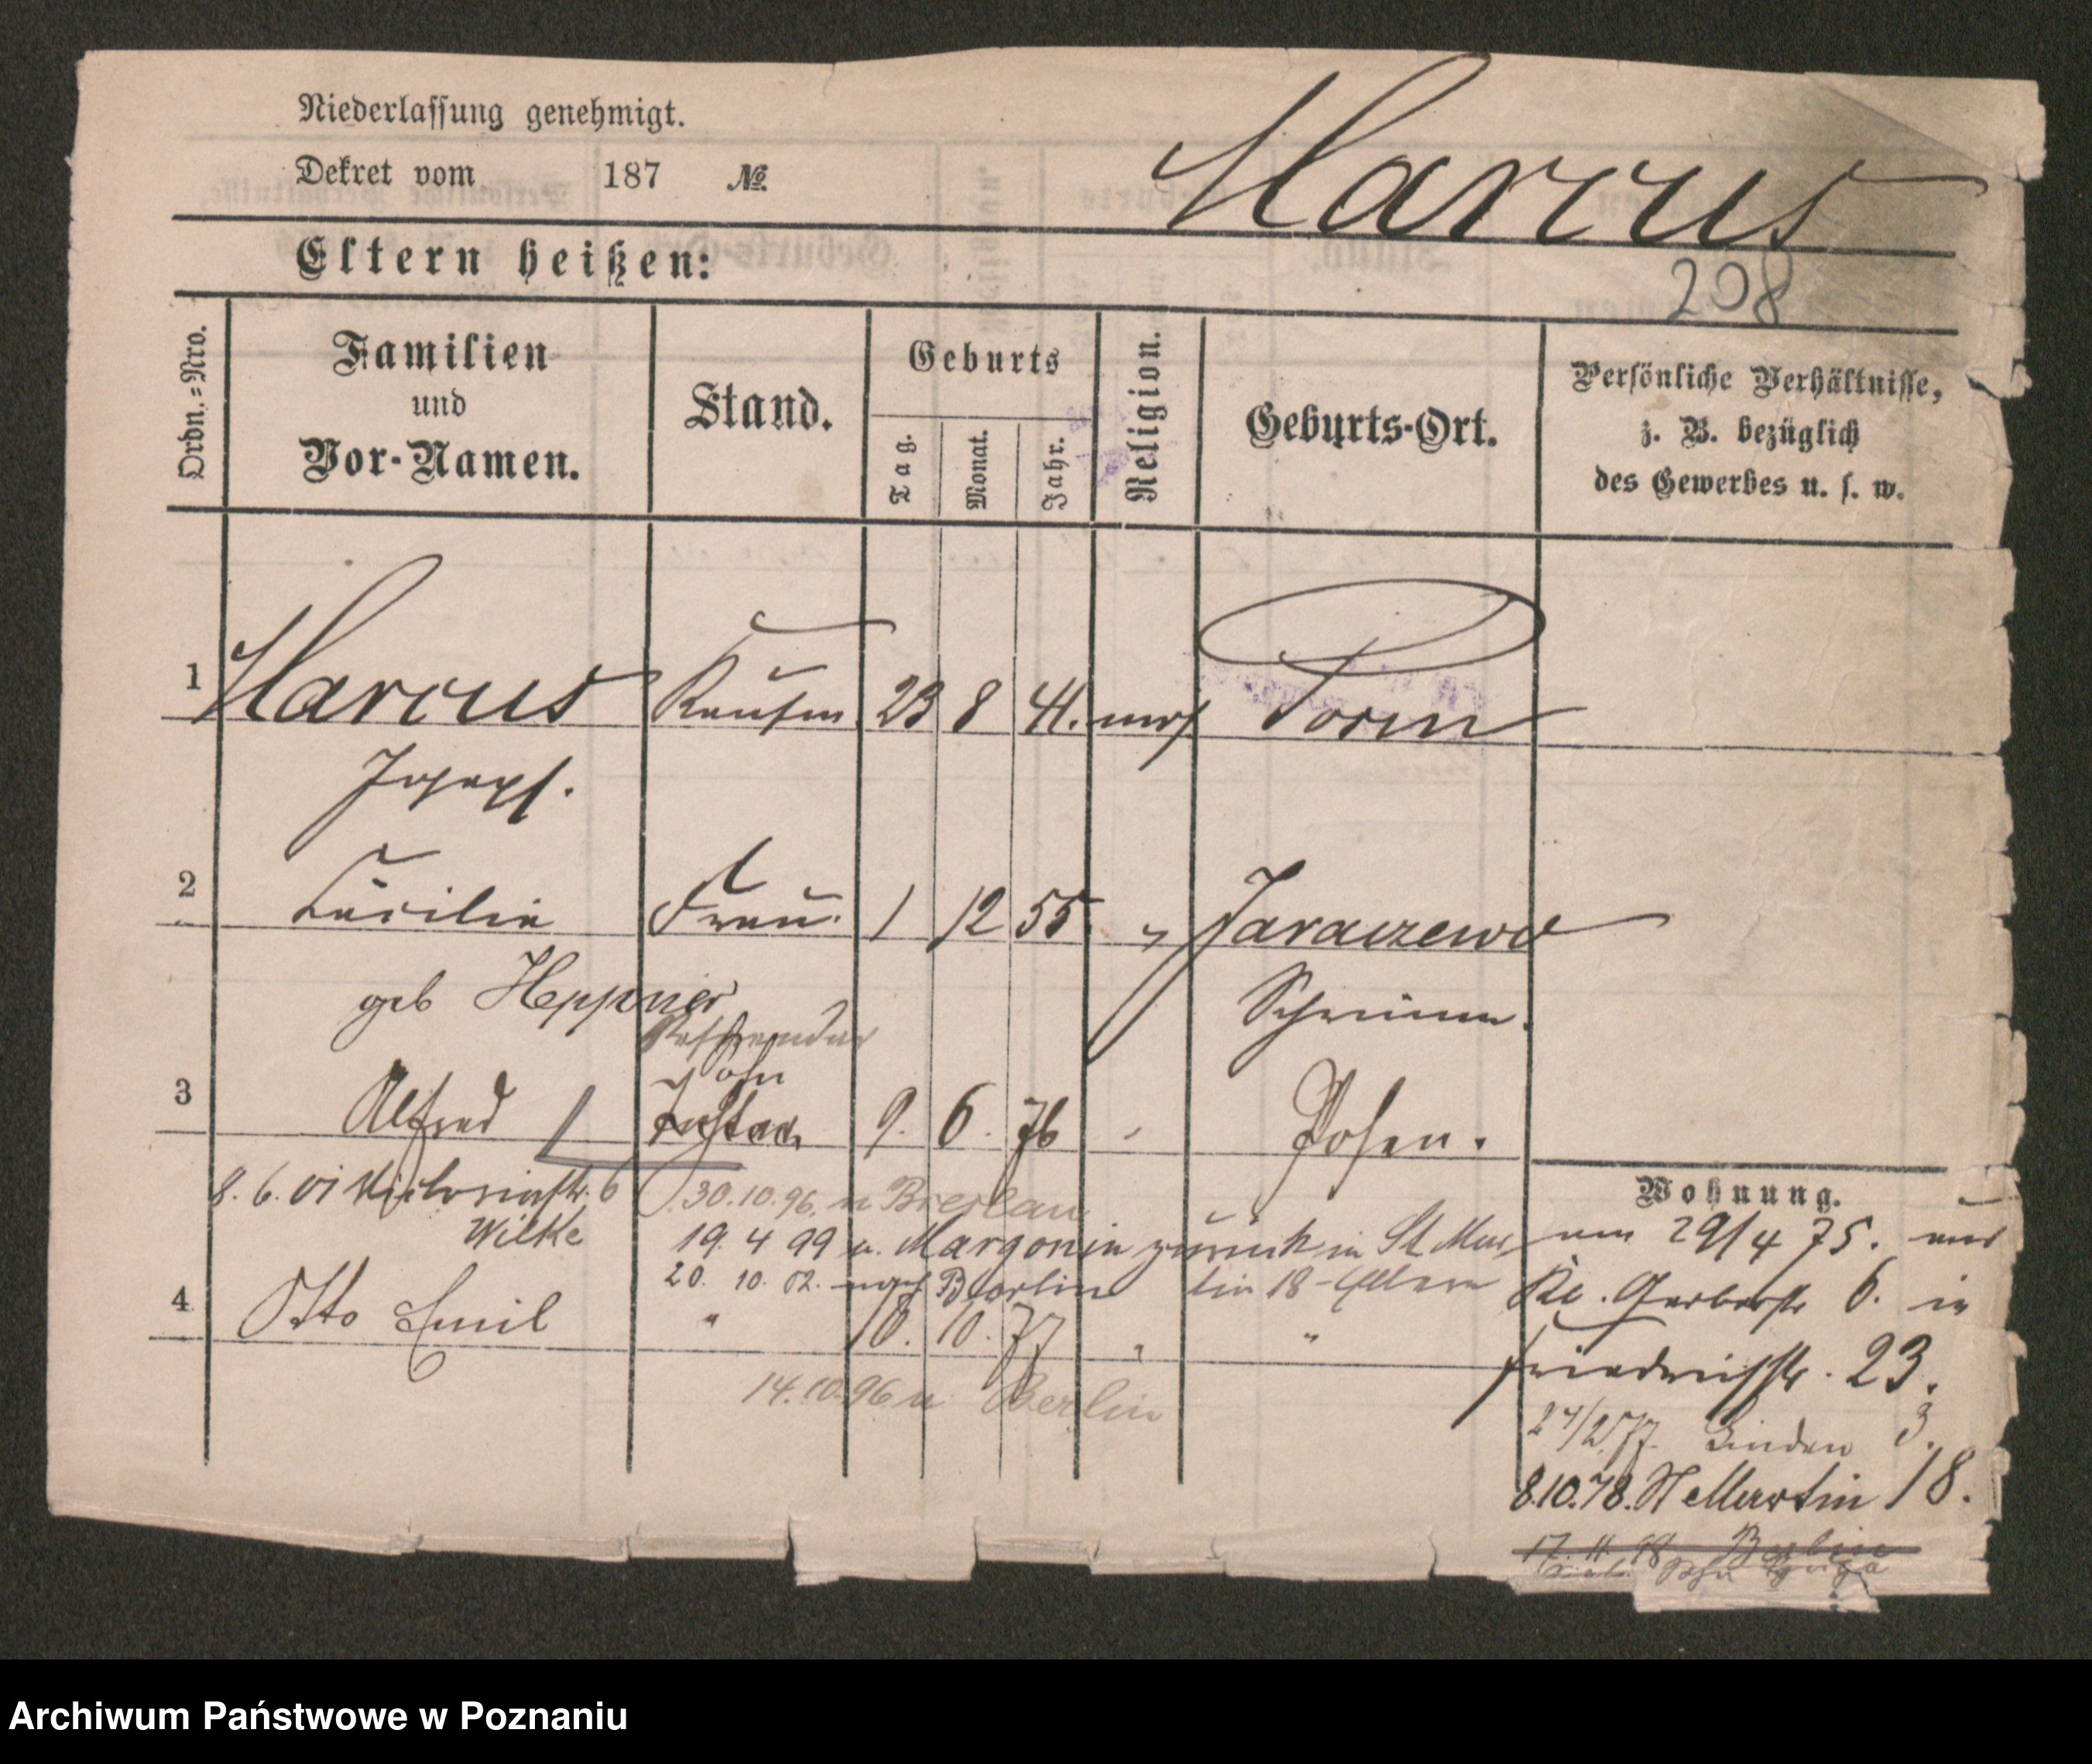 Niederlassung genehmigt.
Dekret vom 187 №
Marcus
208
Eltern heißen:
Ordn.=Nro.
Familien
und
Vor-Namen.
Stand.
Geburts
Tag.
Monat.
Jahr.
Religion.
Geburts-Ort.
Persönliche Verhältnisse,
z. B. bezüglich
des Gewerbes u. s. w.
1 Marcus Kaufm. 23 8 41. mos
Joseph.
2 Cäcilie Frau. 1 12 55. " Jaraczewo
geb Heppner Schrimm.
Referendar
Sohn
3 Alfred 9. 6. 76 " Posen.
8. 6. 01 Victoriastr. 6 30.10.96. n Breslau
Wilke 19. 4 99 v. Margonin zurück in St Mar
20. 10. 02. nach Berlin tin 18 - Eltern
4 Otto Emil " 10. 10. 77 " "
14.10.96 n Berlin
Wohnung.
am 29/4 75. aus
Kl. Gerberstr 6. in
Friedrichstr. 23.
27/2 77. Linden 3.
8.10.78. St Martin 18.
17. 11. 98 Berlin
Archiwum Państwowe w Poznaniu